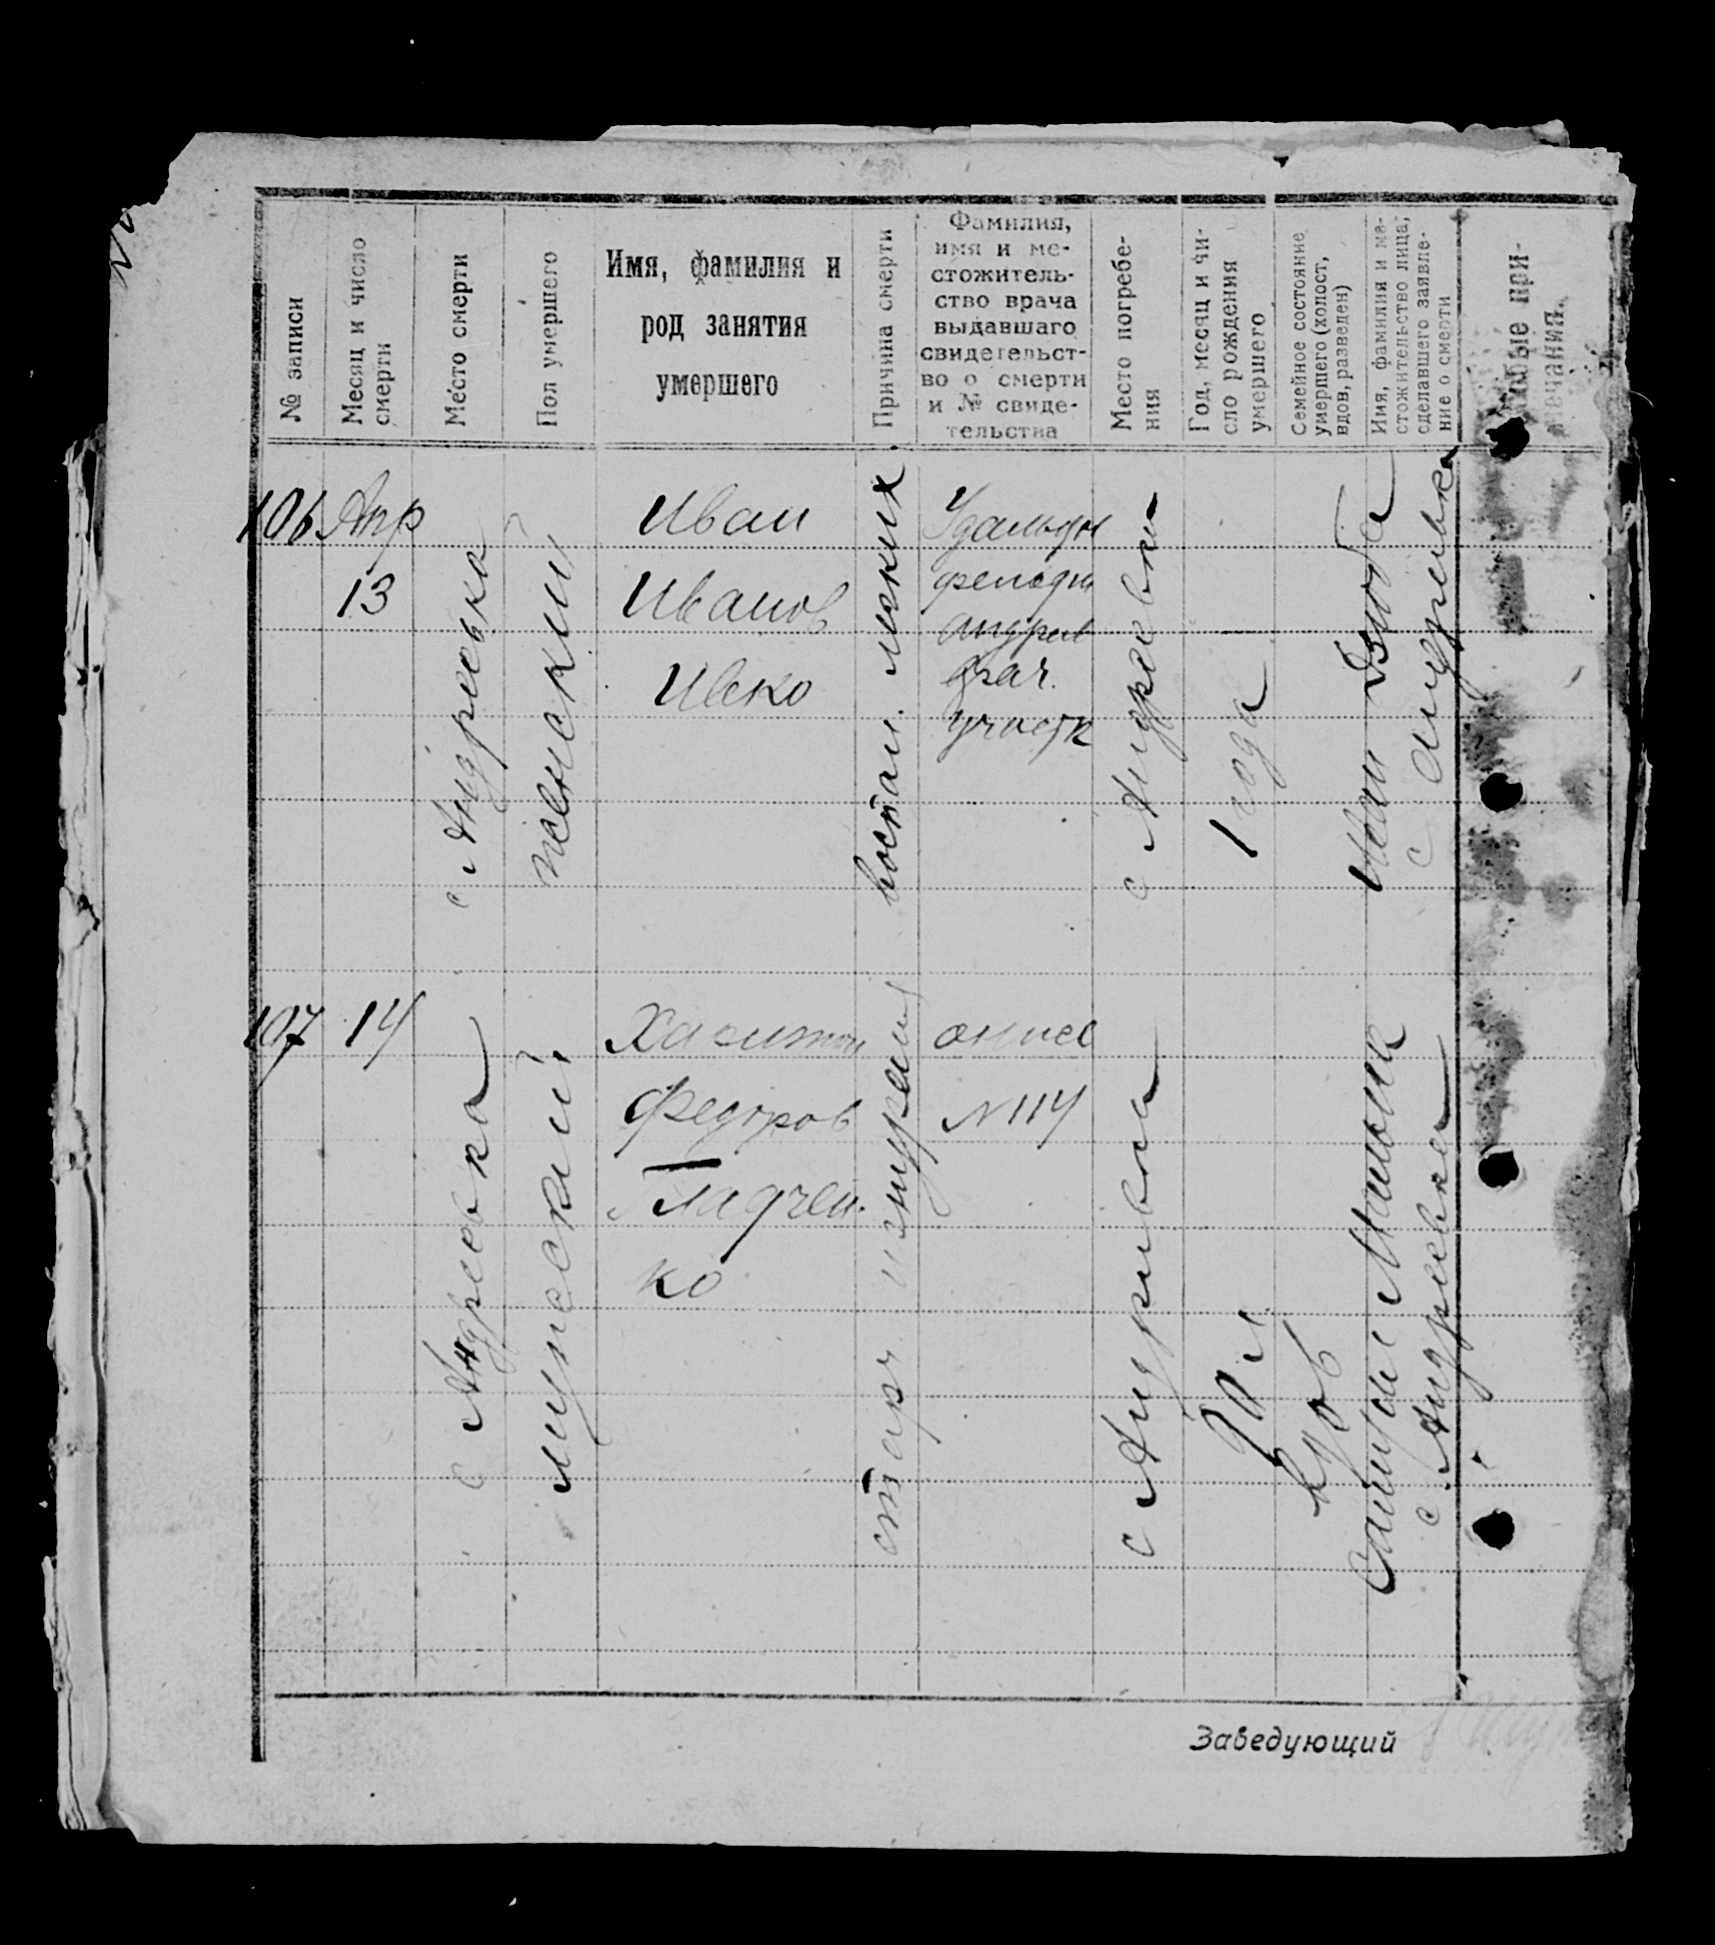 № записи
Месяц и число
смерти
Место смерти
Пол умершего
Имя, фамилия и
род занятия
умершего
Причина смерти
Фамилия,
имя и ме-
стожитель-
ство врача
выдавшаго
свидетельст-
во о смерти
и № свиде-
тельства
Место погребе-
ния
Год, месяц и чи-
сло рождения
умершего
Семейное состояние
умершего (холост,
вдов, разведен)
Имя, фамилия и ме-
стожительство лица,
сделавшего заявле-
ние о смерти
при-
мечания.
106
Апр
13
с Андреевка
женский
Иван
Иванов
Ивко
воспал. легких
фельдш
врач.
участк
с Андреевки
1 года
Иван Дзюба
с Андреевка
107
14
с Андреевка
мужеский
Харитон
Федоров
Гладчен.
ко
стар
№ 114
с Андреевки
вдов
с Андреевка
Заведующий